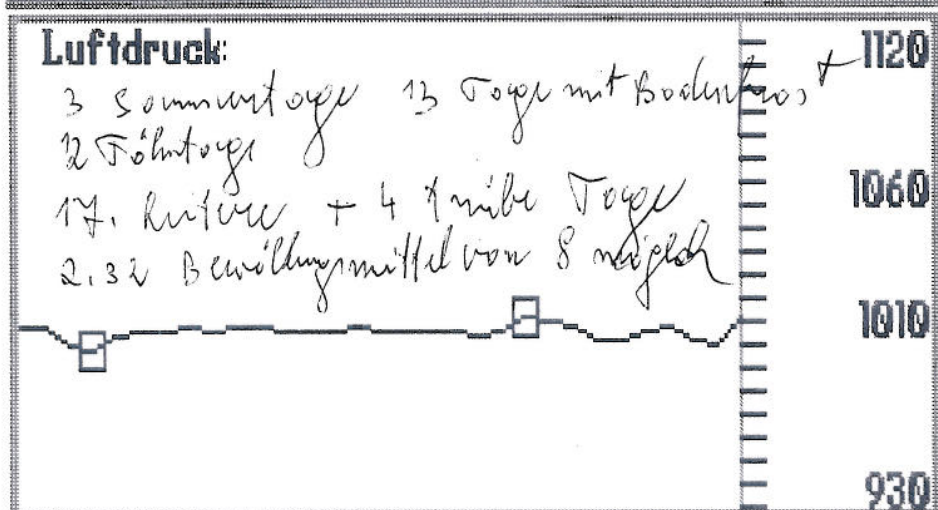 Luftdruck:
1120
3 Sommertage 13 Tage mit Bodenfrost
12 Föhntage
1060
17. heitere + 4 trübe Tage
2.32 Bewölkungsmittel von 8 möglich
1010
930